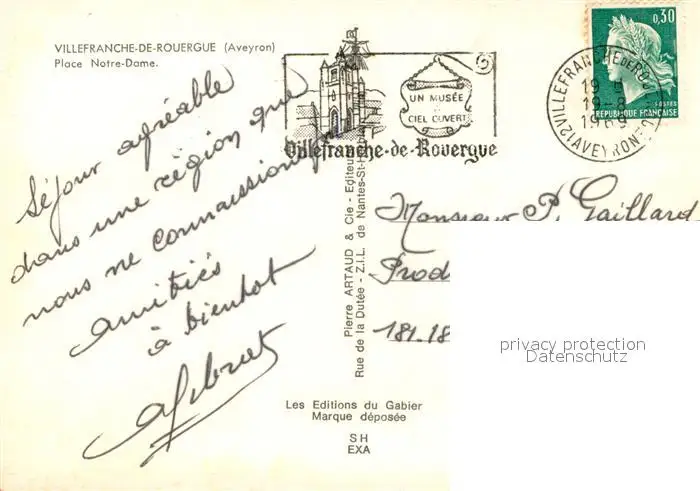 VILLEFRANCHE-DE-ROUERGUE (Aveyron)
Place Notre-Dame.
Séjour agréable
dans une région que
nous ne connaissions
amitiés
à bientôt
Pierre ARTAUD & Cie - Editeurs
Rue de la Dutée - Z.I.L. de Nantes-St-H
Les Editions du Gabier
Marque déposée
SH
EXA
UN MUSÉE
CIEL OUVERT
Villefranche-de-Rouergue
VILLEFRANCHE DE ROUERGUE
19 H
19-8
1969
(12) AVEYRON
0,30
POSTES
REPUBLIQUE FRANÇAISE
Monsieur P. Gaillard
Prod
181-18
privacy protection
Datenschutz